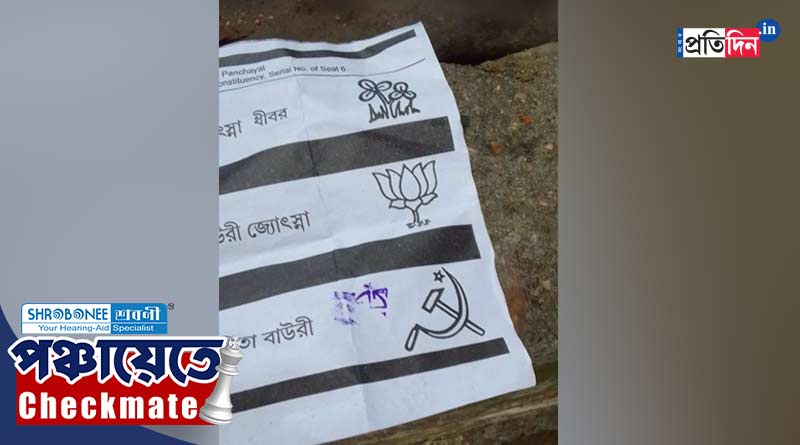 সংবাদ
প্রতিদিন.in
Panchayat
onstituency, Serial No. of Seat 6
ৎস্না ধীবর
উরী জ্যোৎস্না
তা বাউরী
SHROBONEE শ্রবণী
Your Hearing-Aid Specialist
পঞ্চায়েতে
Checkmate